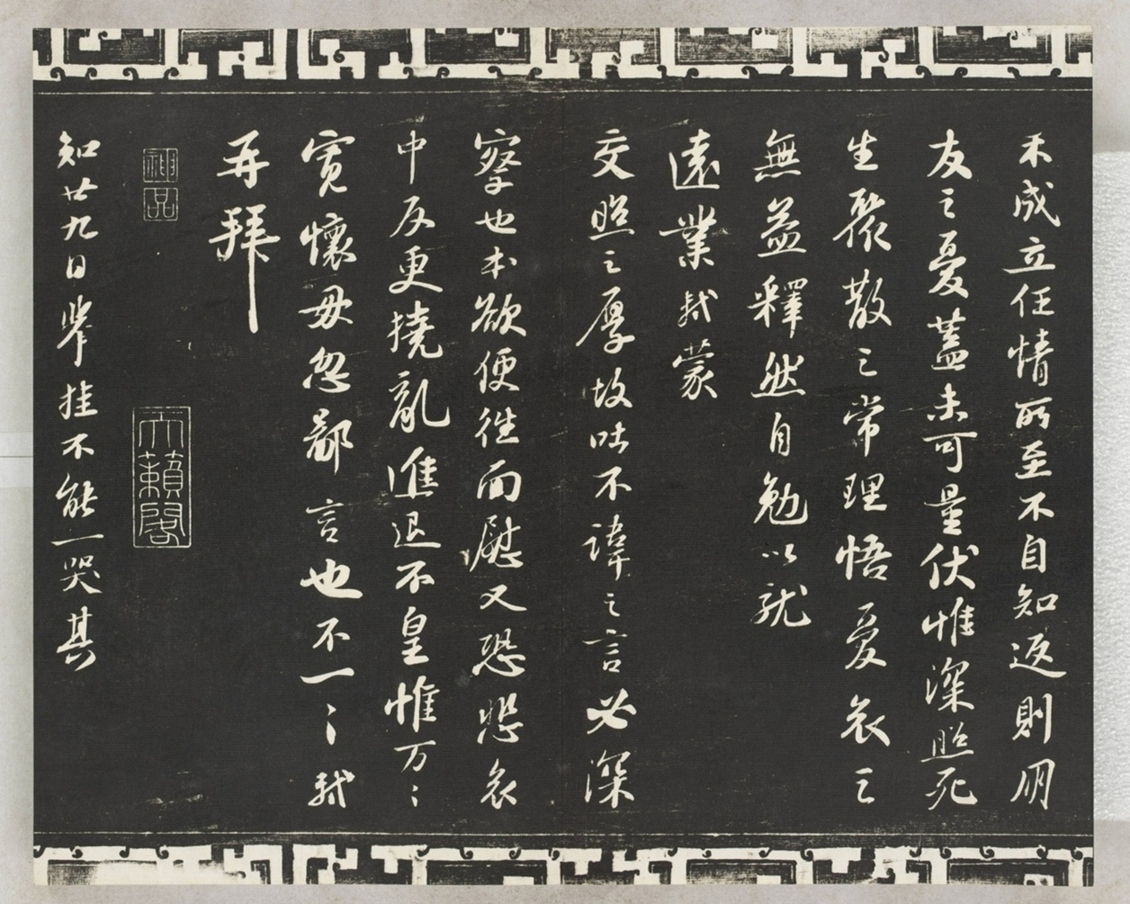 未成立任情所至不自知返則朋
友之憂蓋未可量伏惟深照死
生聚散之常理悟憂哀之
無益釋然自勉以就
遠業軾蒙
交照之厚故吐不諱之言必深
察也本欲便往面慰又恐悲哀
中反更撓亂進退不皇惟万〻
寬懷毋忽鄙言也不一〻軾
再拜
神品
天籟閣
知廿九日舉挂不能一哭其